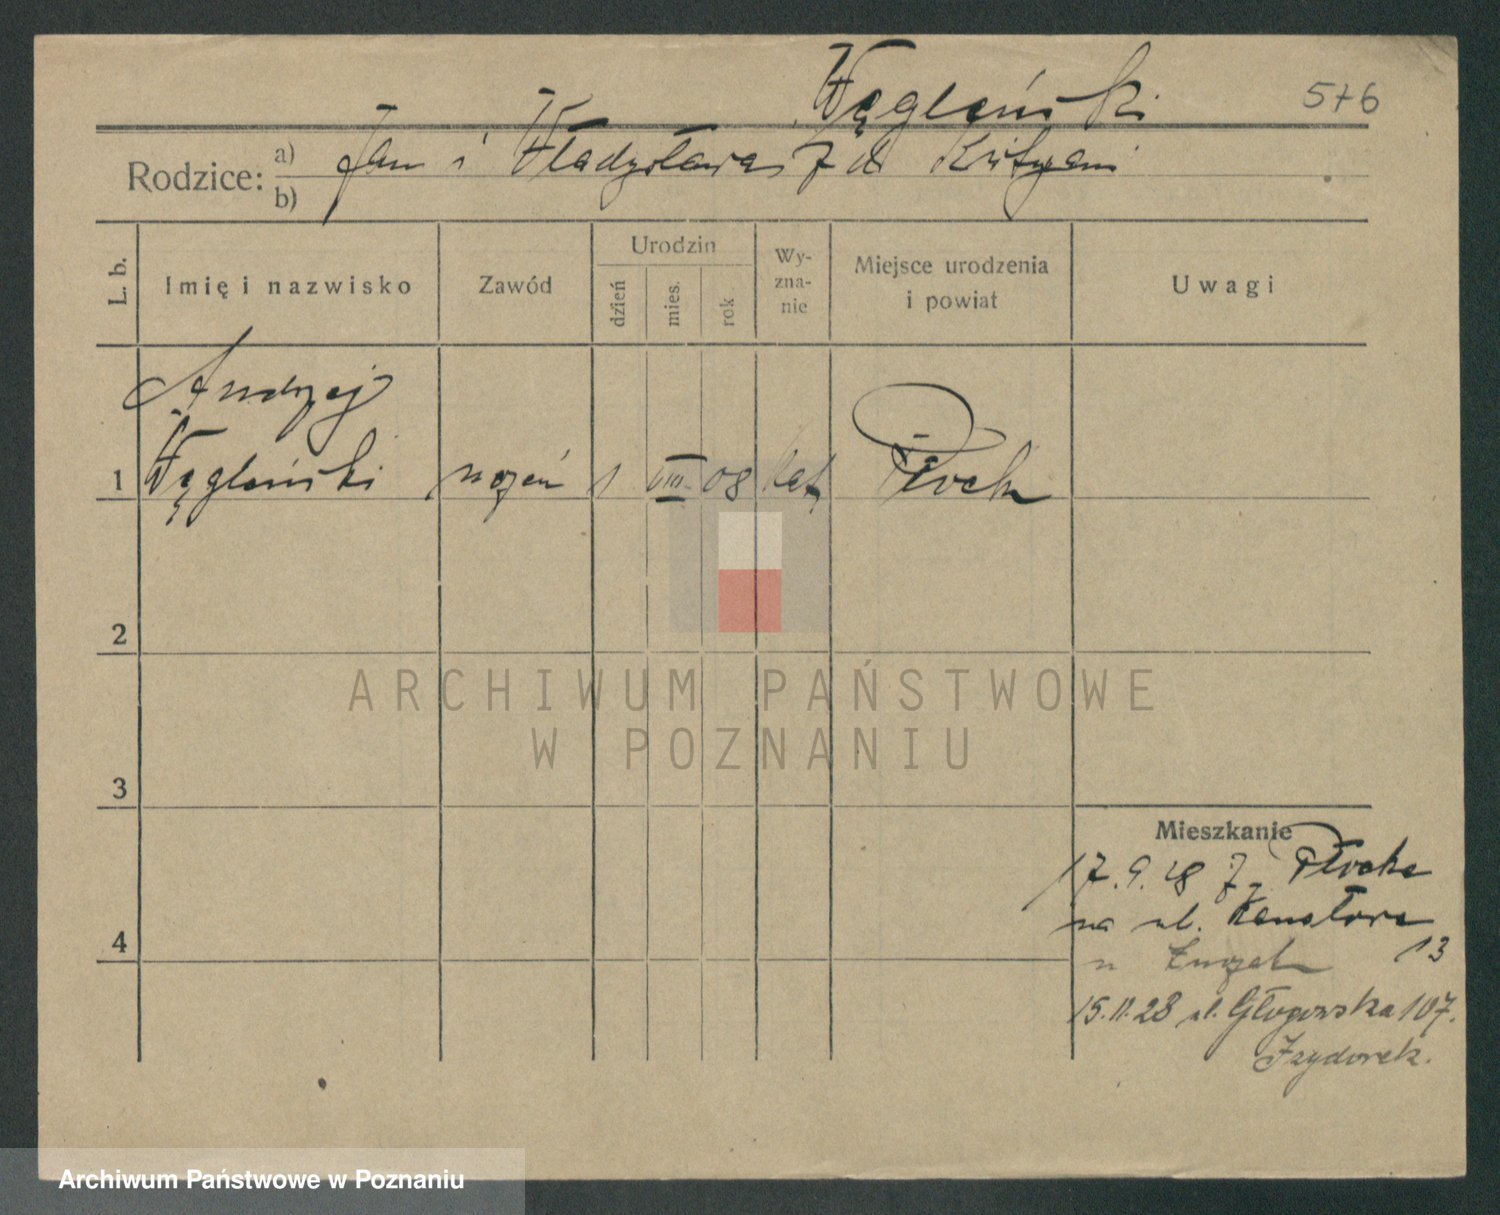 Węgleński 576
Rodzice: a) Jan i Władysława z d.
b)
L. b.
Imię i nazwisko
Zawód
Urodzin
dzień
mies.
rok
Wy-
zna-
nie
Miejsce urodzenia
i powiat
Uwagi
Andrzej
1 Węgleński uczeń 1 VIII 08 kat. Płock
2
3
4
ARCHIWUM PAŃSTWOWE
W POZNANIU
Mieszkanie
17.9.28 z Płocka
na ul. Kanałowa
13
u
15.11.28 ul. Głogowska 107.
Izydorek.
Archiwum Państwowe w Poznaniu